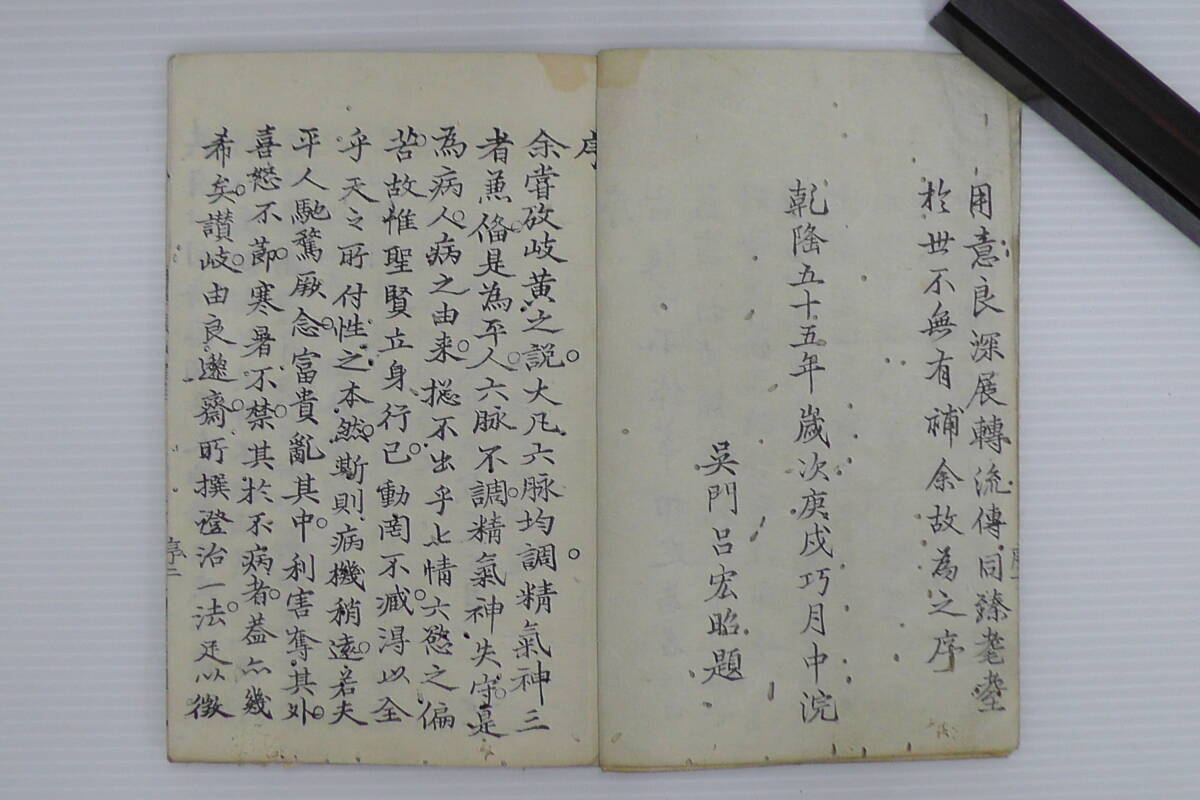 用意良深展轉流傳同臻耄耋
於世不無有補余故為之序
乾隆五十五年歲次庚戌巧月中浣
吳門呂宏昭題
序
余嘗攷岐黃之說大凡六脉均調精氣神三
者兼俻是為平人六脉不調精氣神失守是
為病人病之由来揔不出乎七情六慾之偏
苦故惟聖賢立身行己動罔不臧得以全
乎天之所付性之本然斯則病機稍遠若夫
平人馳騖厥念富貴亂其中利害奪其外
喜怒不節寒暑不禁其於不病者葢亦幾
希矣讃岐由良遯齋所撰證治一法足以徵
序二